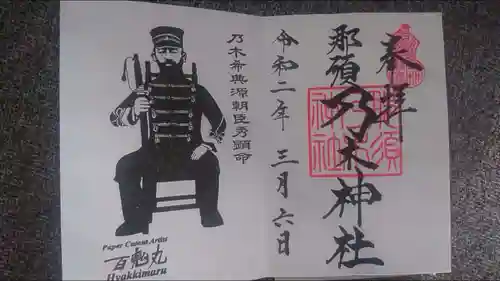 奉拝
那須乃木神社
令和二年 三月六日
乃木希典源朝臣秀顕命
Paper Cutout Artist
百鬼丸
Hyakkimaru